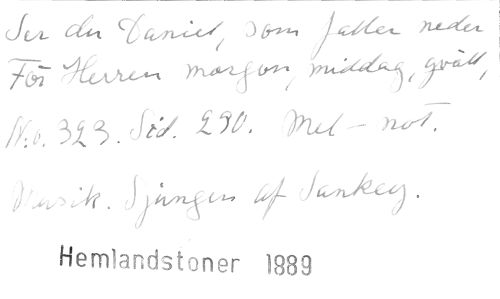 Ser du Daniel, som faller neder
För Herren morgon, middag, qväll,
N:o. 323. Sid. 290. Mel – not.
Musik. Sjungen af Sankey.
Hemlandstoner 1889